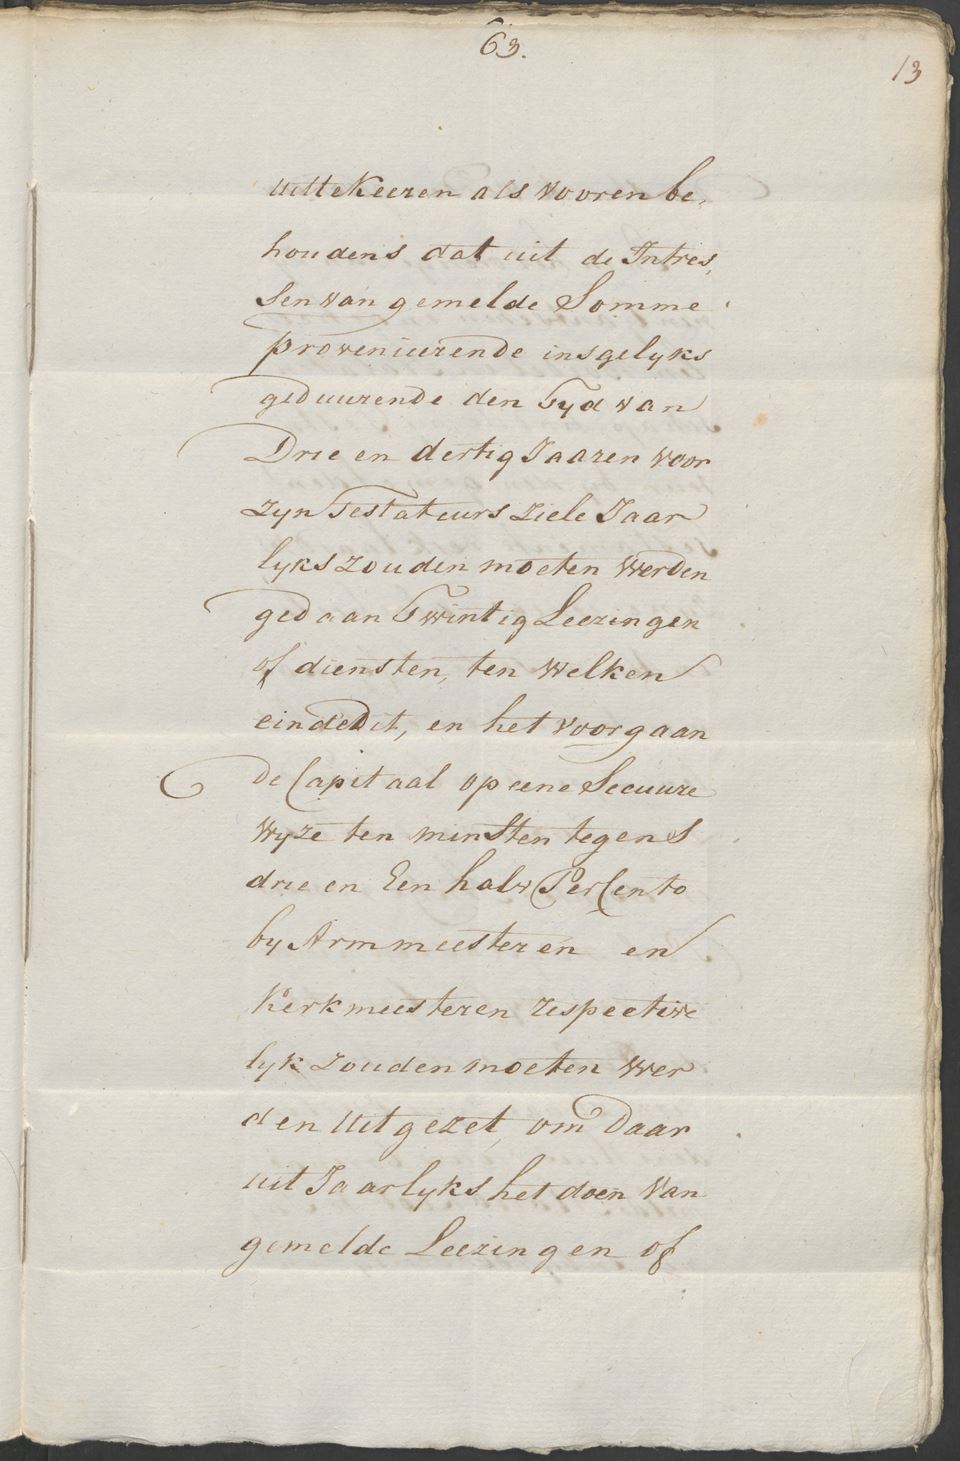 63.
13
uittekeeren als vooren be,
houdens dat uit de Intres,
sen van gemelde Somme
provenieerende insgelyks
geduurende den Tyd van
Drie en dertig Jaaren voor
zyn Testateurs ziele Jaar
lyks zouden moeten werden
gedaan Twintig Leezingen
of diensten, ten welken
einde dit, en het voorgaan
de Capitaal op eene Secuure
wyze ten minsten tegens
drie en Een halv Per Cento
by Armmeesteren en
Kerkmeesteren respective
lyk zouden moeten wer
den uitgezet, om daar
uit Jaarlyks het doen van
gemelde Leezingen of